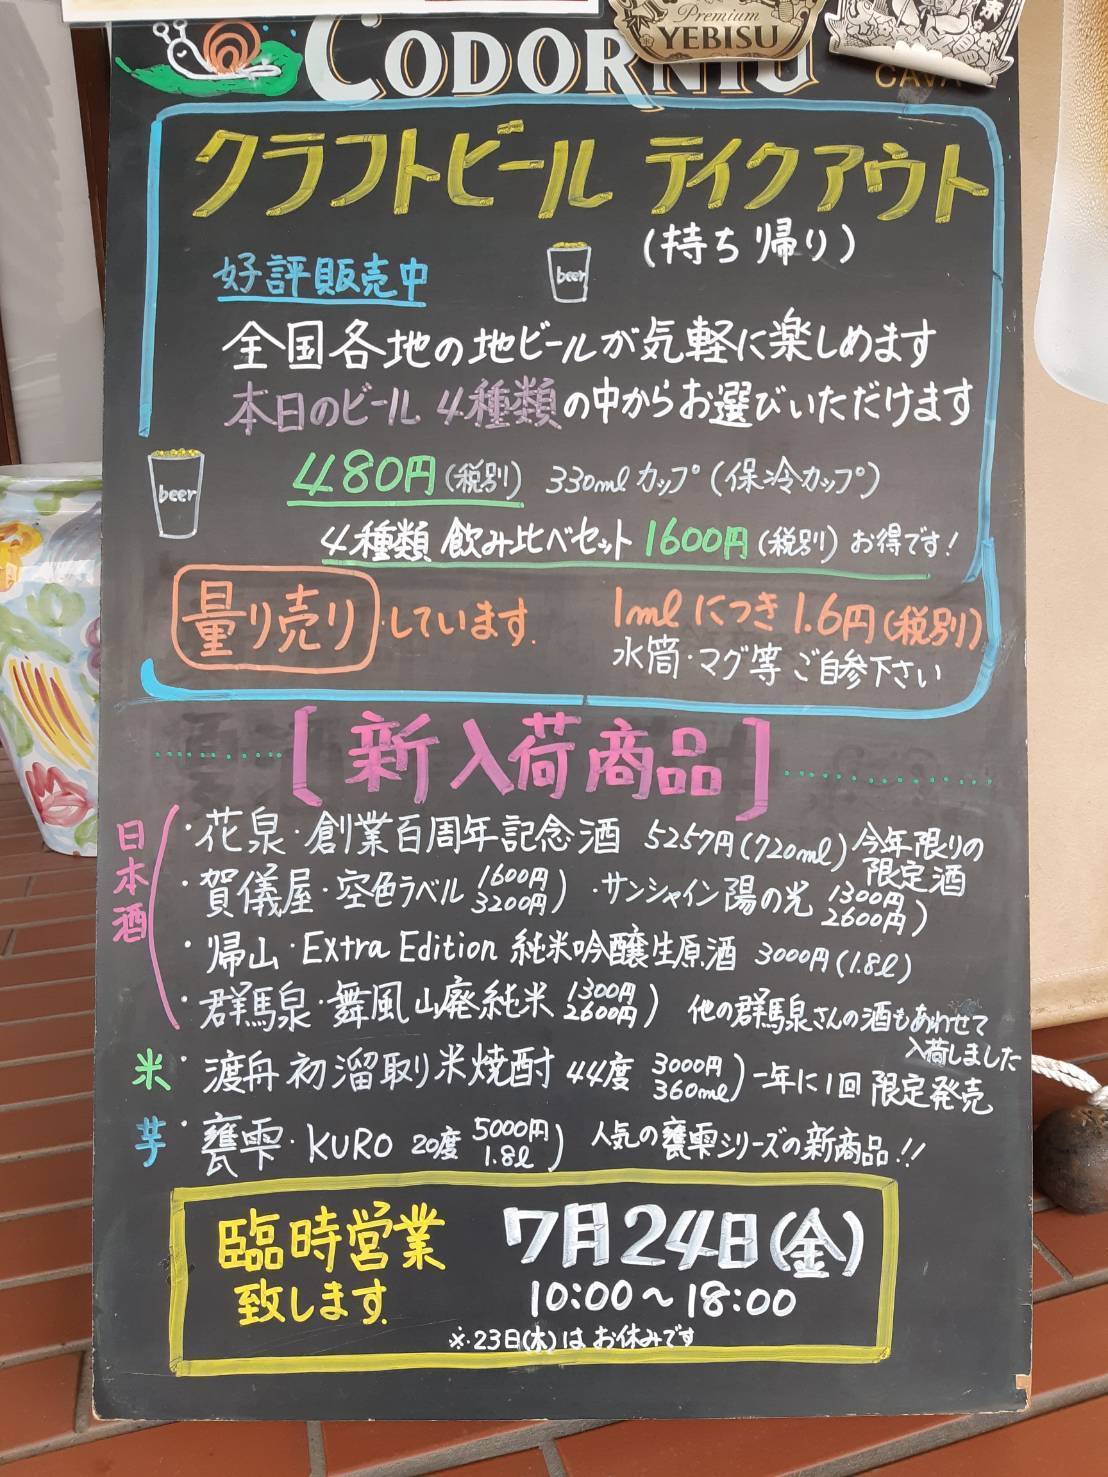 CODORNIU
Premium
YEBISU
CAVA
クラフトビール テイクアウト
(持ち帰り)
好評販売中
beer
全国各地の地ビールが気軽に楽しめます
本日のビール 4種類の中からお選びいただけます
beer
480円(税別) 330mlカップ(保冷カップ)
4種類 飲み比べセット 1600円(税別) お得です!
量り売りしています. 1mlにつき1.6円(税別)
水筒・マグ等 ご自参下さい
[新入荷商品]
日本酒
・花泉・創業百周年記念酒 5257円(720ml) 今年限りの限定酒
・賀儀屋・空色ラベル 1600円 3200円) ・サンシャイン陽の光 1300円 2600円)
・帰山・Extra Edition 純米吟醸生原酒 3000円(1.8l)
・群馬泉・舞風山廃純米 1300円 2600円) 他の群馬泉さんの酒もあわせて入荷しました
米・渡舟 初溜取り米焼酎 44度 3000円 360ml) 一年に1回 限定発売
芋・甕雫・KURO 20度 5000円 1.8l) 人気の甕雫シリーズの新商品!!
臨時営業 7月24日(金)
致します. 10:00〜18:00
※.23日(木)は お休みです